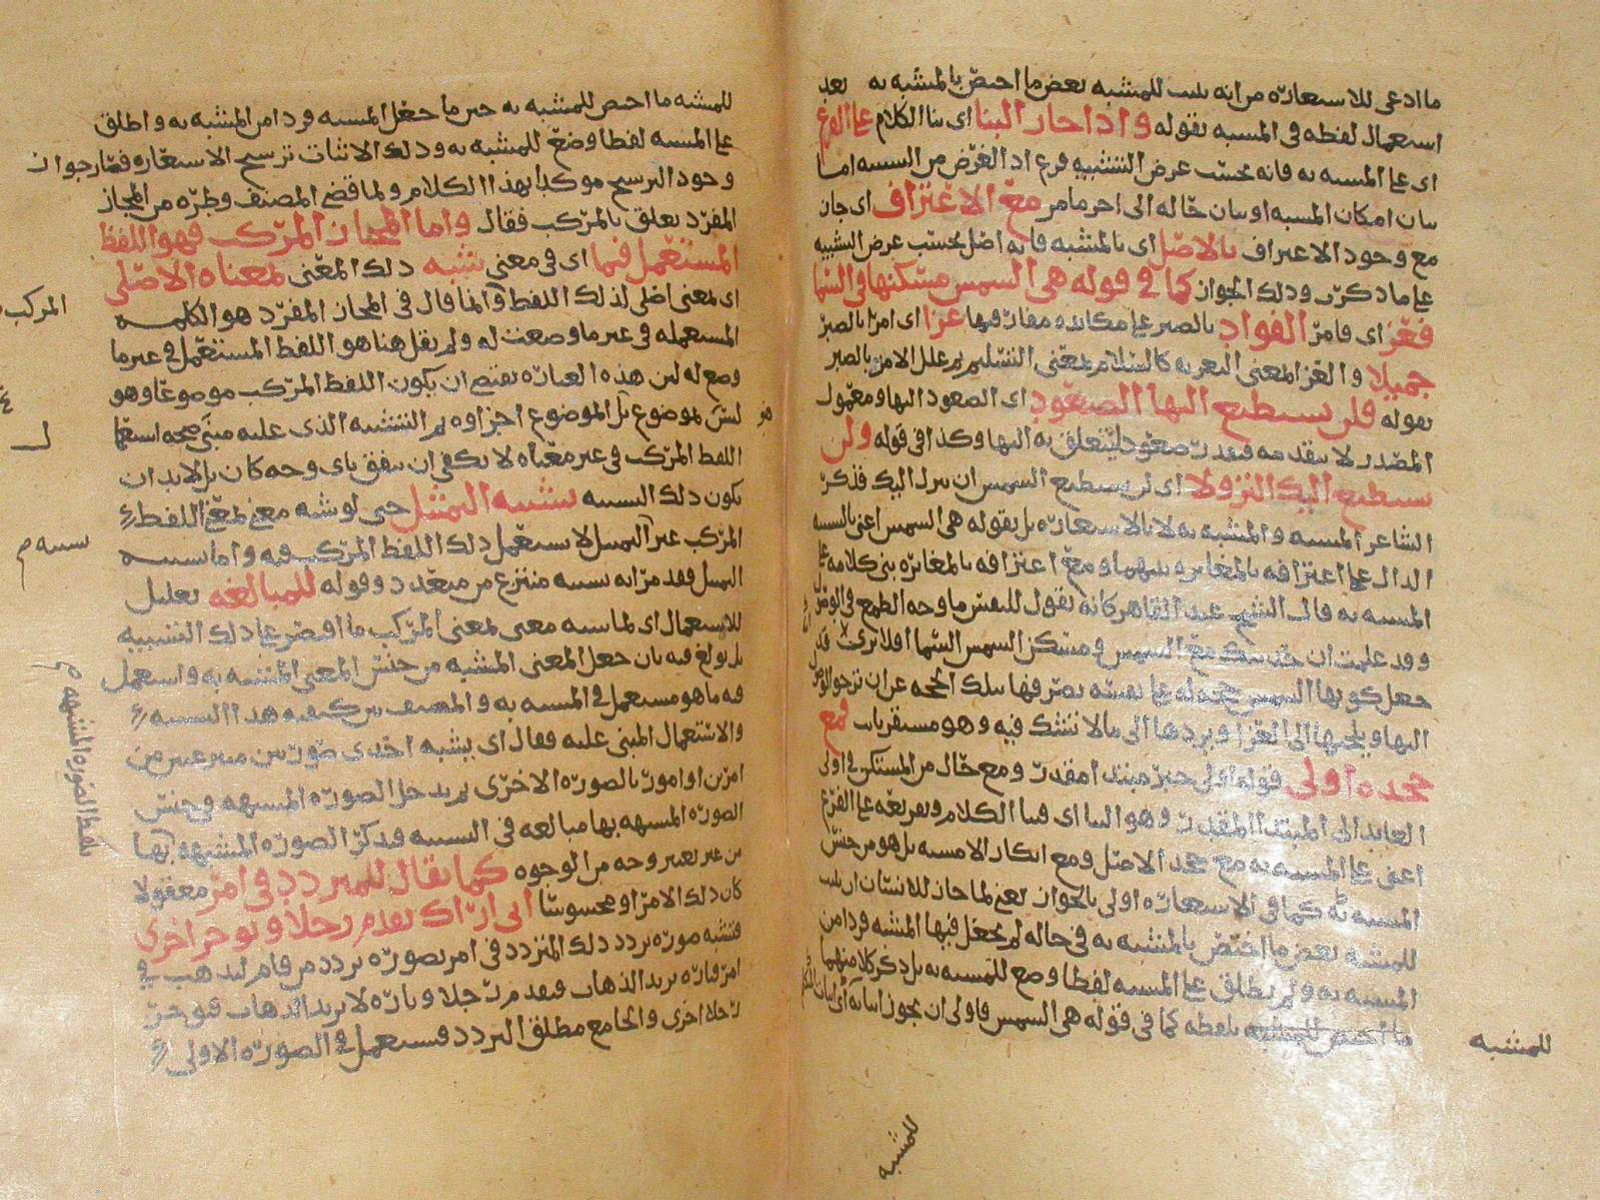 ما ادعى للاستعارة من انه يثبت للمشبه بعض ما اختص بالمشبه به بعد
استعمال لفظه في المشبه بقوله واذا جاز البنا اى بنا الكلام على الفرع
اى على المشبه به فانه بحسب غرض التشبيه فرع اذ الغرض من التشبيه اما
بيان امكان المشبه او بيان حاله الى اخر ما مر مع الاعتراف اى جاز
مع وجود الاعتراف بالاصل اى بالمشبه فانه اصل بحسب غرض التشبيه
على ما ذكر وذلك الجواز كما في قوله هي الشمس مسكنها في السما
فعز اى فامر الفواد بالصبر على مكابدة مفارقتها عزا اى امرا بالصبر
جميلا والعز المعنى التعزيه كالسلام بمعنى التسليم ثم علل الامر بالصبر
بقوله فلن تستطيع اليها الصعود اى الصعود اليها ومعمول
المصدر لا يتقدمه فيقدر صعود ليتعلق به اليها وكذا في قوله ولن
تستطيع اليك النزولا اى لن تستطيع الشمس ان تنزل اليك فذكر
الشاعر المشبه والمشبه به لا بالاستعارة بل بقوله هي الشمس اعنى بالتشبيه
الدال على اعترافه بالمغايره بينهما ومع اعترافه بالمغايره بنى كلامه على
المشبه به قال الشيخ عبد القاهر كانه يقول للنفس ما وجه الطمع في الوصل
وقد علمت ان حديثك مع الشمس ومسكن الشمس السما افلا ترى قد
جعل كونها الشمس حجة له على نفسه يصرفها بتلك الحجه عن ان ترجو الوصول
اليها ويلجيها الى العزا ويردها الى ما لا تشك فيه وهو مستقر ثابت فمع
جحده اولى فقوله اولى خبر مبتدا مقدر ومع حال من المستكن في اولى
العايد الى المبتدا المقدر وهو البنا اى فبنا الكلام وتفريعه على الفرع
اعنى على المشبه به مع جحد الاصل ومع انكار الاصل بل هو من جنس
المشبه به كما في الاستعاره اولى بالجواز يعنى لما جاز للانسان ان يثبت
للمشبه بعض ما اختص بالمشبه به في حاله لم يجعل فيها المشبه فردا من
المشبه به ولم يطلق على المشبه لفظا وضع للمشبه به بل ذكر كلا منهما
بلفظه كما في قوله هي الشمس فاولى ان يجوز اثباته
للمشبه
للمشبه
للمشبه ما اختص للمشبه به حين ما جعل المشبه فردا من المشبه به واطلق
على المشبه لفظا وضع للمشبه به وذلك الاثبات ترشيح الاستعاره فصار جواز
وجود الترشيح موكدا بهذا الكلام ولما قضى المصنف وطره من المجاز
المفرد تعلق بالمركب فقال واما المجاز المركب فهو اللفظ
المستعمل فيما اى في معنى شبه ذلك المعنى لمعناه الاصلى
اى لمعنى اصلى لذلك اللفظ وانما قال في المجاز المفرد هو الكلمه
المستعمله في غير ما وضعت له ولم يقل هنا هو اللفظ المستعمل في غير ما
وضع له لان هذه العباره تقتضى ان يكون اللفظ المركب موضوعا وهو
ليس بموضوع بل الموضوع اجزاوه ثم التشبيه الذى عليه مبنى صحه استعمال
اللفظ المركب في غير معناه لا يكفى ان يتفق باى وجه كان بل لا بد ان
يكون ذلك التشبيه تشبيه التمثيل حتى لو شبه معنى بمعنى اللفظ
المركب غير التمثيل لا يستعمل ذلك اللفظ المركب فيه واما تشبيه
التمثيل فقد مر انه تشبيه منتزع من متعدد وقوله للمبالغه تعليل
للاستعمال اى لما شبه معنى بمعنى المركب ما اقتصر على ذلك التشبيه
بل بولغ فيه بان جعل المعنى المشبه من جنس المعنى المشبه به واستعمل
فيه ما هو مستعمل في المشبه به والمصنف بين كيفيه هذا التشبيه
والاستعمال المبنى عليه فقال اى يشبه احدى صورتين منتزعتين من
امرين او امور بالصوره الاخرى ثم يدخل الصورة المشبهه في جنس
الصوره المشبهه بها مبالغه في التشبيه فيذكر الصوره المشبهه بها
من غير تغيير وجه من الوجوه كما يقال للمتردد في امر معقولا
كان ذلك الامر او محسوسا انى اراك تقدم رجلا وتوخر اخرى
فتشبه صوره تردد ذلك المتردد في امر بصوره تردد من قام ليذهب في
امر فتاره يريد الذهاب فيقدم رجلا وتاره لا يريد الذهاب فيوخر
رجلا اخرى والجامع مطلق التردد فيستعمل في الصوره الاولى
المركب
بلفظ الصوره المشبهه